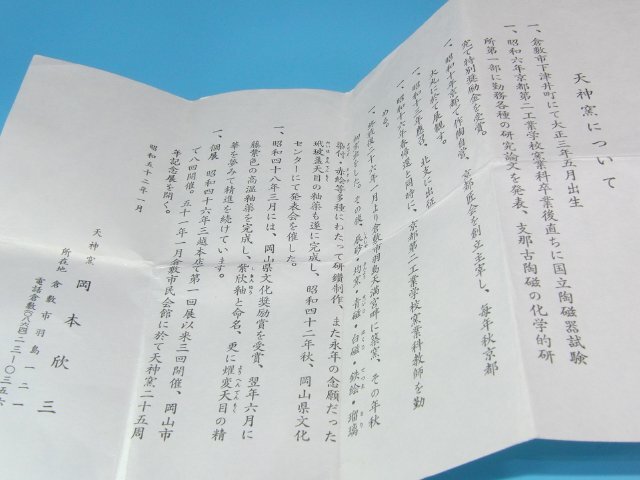 天神窯について
一、倉敷市下津井町にて大正三年五月出生
一、昭和六年京都第二工業学校窯業科卒業後直ちに国立陶磁器試験
所第一部に勤務各種の研究論文を発表、支那古陶磁の化学的研
究で特別奨励金を受賞。
一、昭和十年京都で作陶自営、京都匠会を創立主宰し、毎年秋京都
大丸に於て展観す。
一、昭和十三年応召、北支に出征
一、昭和十六年帰還と同時に、京都第二工業学校窯業科教師を勤
める。
一、終戦後二十六年一月より倉敷市羽島天満宮畔に築窯、その年秋
初窯を出した。その後、辰砂・均窯・青磁・白磁・鉄絵・瑠璃
染付・赤絵等多種にわたって研鑽制作、また永年の念願だった
玳玻盞天目の釉薬も遂に完成し、昭和四十二年秋、岡山県文化
センターにて発表会を催した。
一、昭和四十八年三月には、岡山県文化奨励賞を受賞、翌年六月に
藤紫色の高温釉薬を完成し、紫欣釉と命名、更に燿変天目の精
華を夢みて精進を続けています。
一、個展 昭和四十六年三越本店で第一回展以来三回開催、岡山市
で八回開催。五十一年一月倉敷市民会館に於て天神窯二十五周
年記念展を開く。
昭和五十二年一月
天神窯 岡本欣三
所在地 倉敷市羽島一二一
電話倉敷(〇八六四)二三-〇三五六